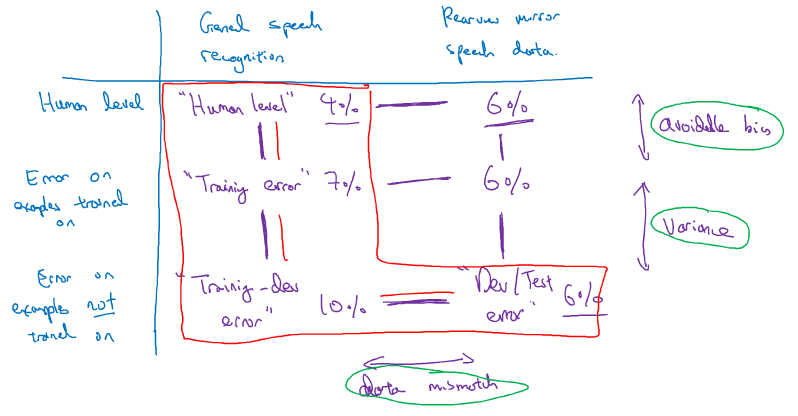 General speech
recognition
Rearview mirror
speech data.
Human level
"Human level" 4%
6%
avoidable bias
Error on
examples trained
on
"Training error" 7%
6%
Variance
Error on
examples not
trained on
"Training-dev
error" 10%
"Dev/Test
error" 6%
data mismatch